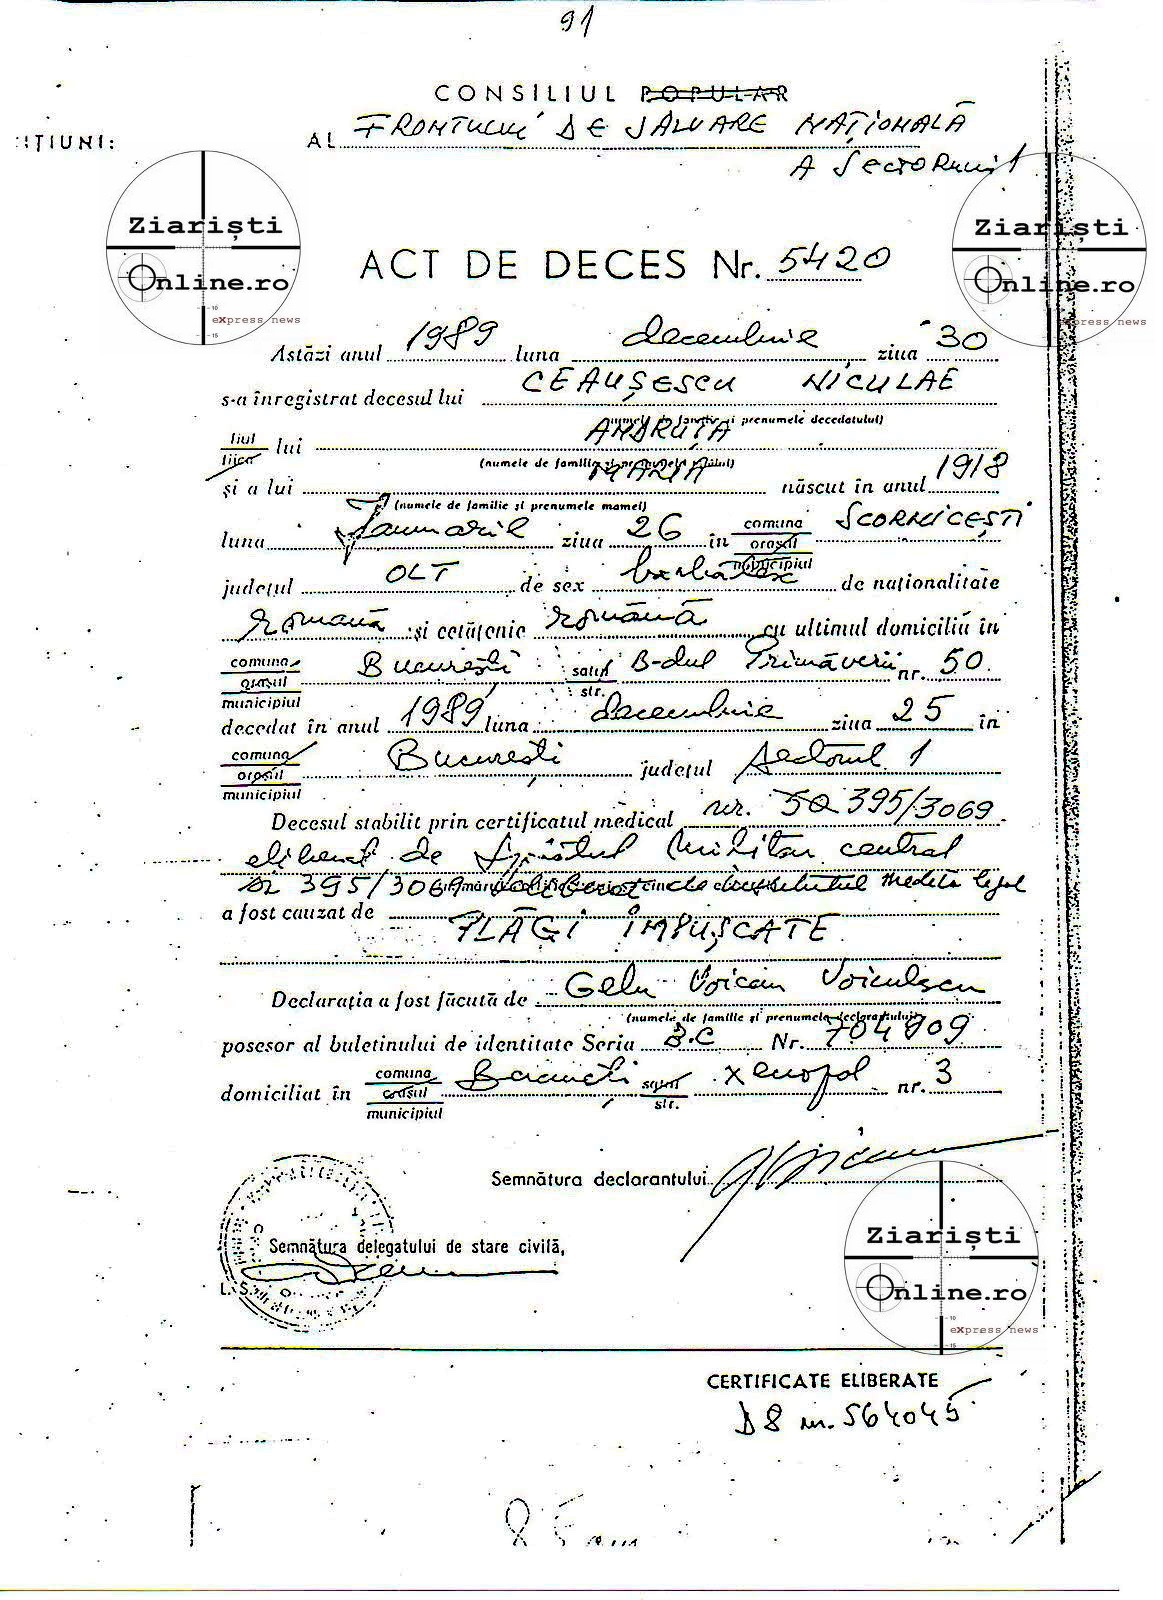 91
CONSILIUL POPULAR
ȚIUNI:
AL FRONTULUI DE SALVARE NAȚIONALĂ
A SECTORULUI 1
Ziariști
Online.ro
eXpress news
Ziariști
Online.ro
eXpress news
ACT DE DECES Nr. 5420
Astăzi anul 1989 luna decembrie ziua 30
s-a înregistrat decesul lui CEAUȘESCU NICULAE
(numele de familie și prenumele decedatului)
fiul
fiica
lui ANDRUȚA
(numele de familie și prenumele tatălui)
și a lui MARIA născut în anul 1918
(numele de familie și prenumele mamei)
luna Ianuarie ziua 26 în comuna orașul municipiul SCORNICEȘTI
județul OLT de sex bărbătesc de naționalitate
română și cetățenie română cu ultimul domiciliu în
comuna orașul municipiul București satul str. B-dul Primăverii nr. 50
decedat în anul 1989 luna decembrie ziua 25 în
comuna orașul municipiul București județul Sectorul 1
Decesul stabilit prin certificatul medical nr. 50 395/3069
eliberat de Spitalul Militar central
395/3069 eliberat de Institutul Medico legal
a fost cauzat de
PLĂGI ÎMPUȘCATE
Declarația a fost făcută de Gelu Voican Voiculescu
(numele de familie și prenumele declarantului)
posesor al buletinului de identitate Seria B.C Nr. 704909
domiciliat în comuna orașul municipiul București satul str. Xenopol nr. 3
Semnătura declarantului
Semnătura delegatului de stare civilă,
L. S.
Ziariști
Online.ro
eXpress news
CERTIFICATE ELIBERATE
D8 nr. 564045